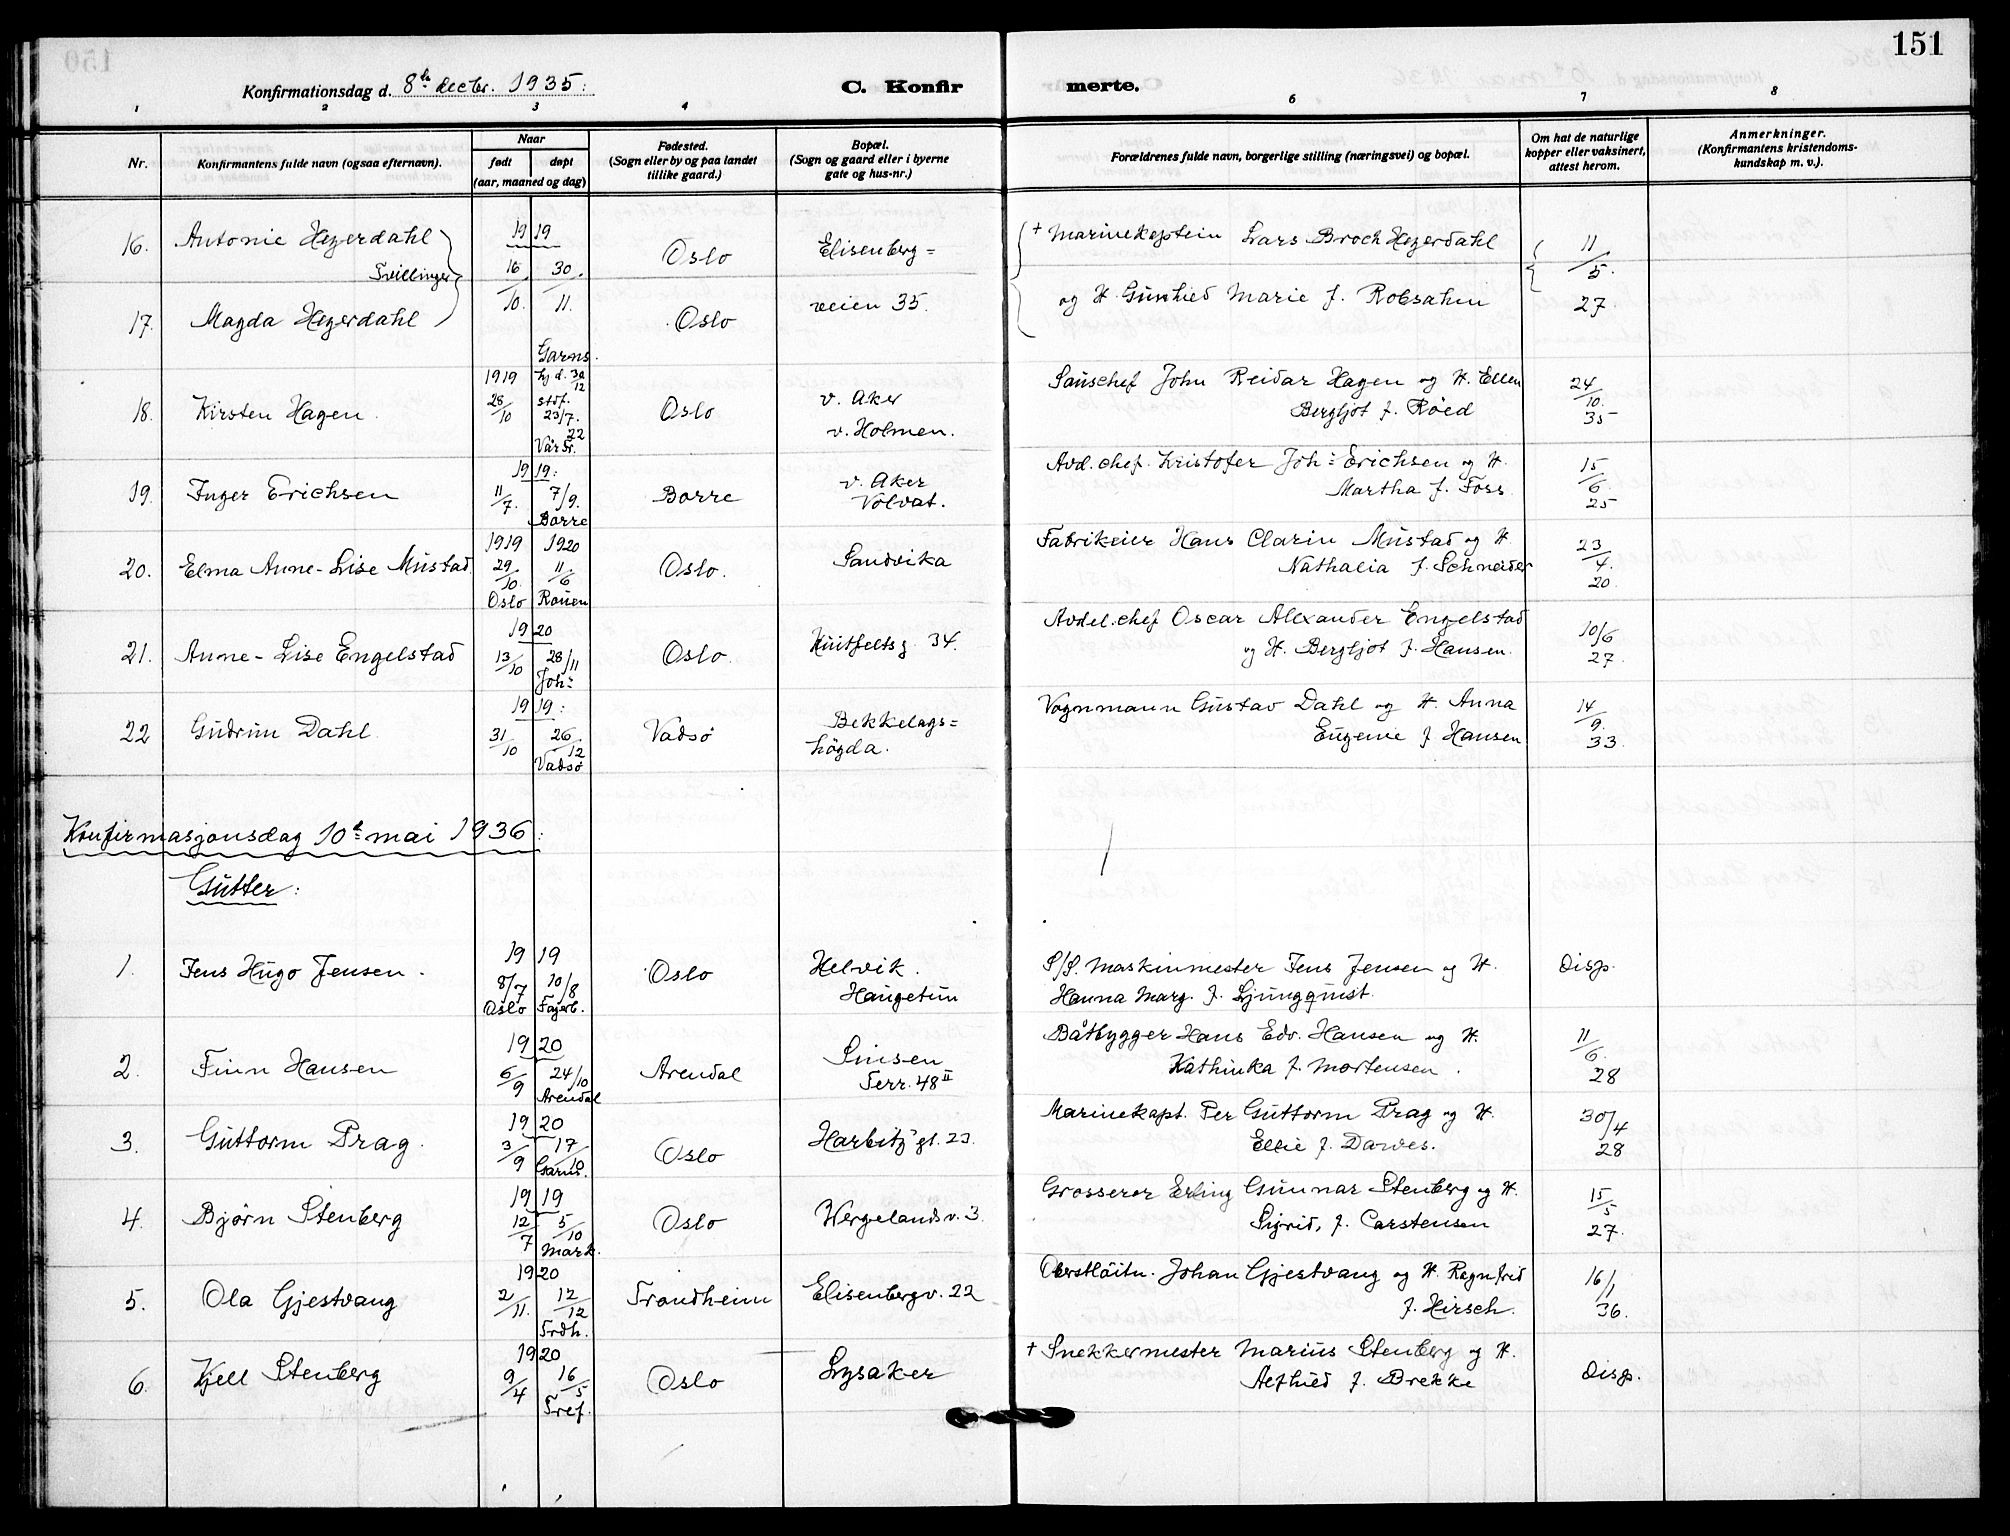 151
Konfirmationsdag d. 8de decbr. 1935:
C. Konfirmerte.
1 2 3 4 6 7 8
Nr.
Konfirmantens fulde navn (ogsaa efternavn).
Naar
født døpt
(aar, maaned og dag)
Fødested.
(Sogn eller by og paa landet
tillike gaard.)
Bopæl.
(Sogn og gaard eller i byerne
gate og hus-nr.)
Forældrenes fulde navn, borgerlige stilling (næringsvei) og bopæl.
Om hat de naturlige
kopper eller vaksinert,
attest herom.
Anmerkninger.
(Konfirmantens kristendoms-
kundskap m. v.).
16. Antonie Heyerdahl 19 19 Oslo Elisenberg= + Marinekaptein Lars Broch Heyerdahl 11/5.
Tvillinger 16/10 30/11.
17. Magda Heyerdahl Oslo veien 35. og H. Gunhild Marie f. Robsahm 27.
Garns.
18. Kirsten Hagen. 1919 28/10 hj d. 30/12 stdf. 23/7. 22 Vår Fr. Oslo v. Aker Sauschef John Reidar Hagen og H. Ellen 24/10. 35
v. Holmen. Bergljot f. Røed
19. Inger Erichsen 19 19: 11/7. 7/9. Borre Borre v. Aker Avd. chef. Kristofer Joh: Erichsen og H. 15/6. 25
Volvat. Martha f. Foss
20. Elma Anne-Lise Mustad 1919 29/10. Oslo 1920 11/6 Rouen Oslo. Sandvika Fabrikeier Hans Clarin Mustad og H. 23/4. 20.
Nathalia f. Schneider
21. Anne-Lise Engelstad 19 20 13/10 28/11 Joh: Oslo. Huitfeltsg. 34. Avdel.chef Oscar Alexander Engelstad 10/6 27.
og H. Bergljot f. Hansen.
22 Gudrun Dahl 19 19: 31/10 26/12 Vadsø Vadsø Bekkelags= Vognmann Gustav Dahl og H. Anna 14/9. 33.
högda. Eugenie f Hansen
Konfirmasjonsdag 10de mai 1936:
Gutter:
1. Jens Hugo Jensen. 19 19 8/7 Oslo 10/8 Fagerb. Oslo Helvik. S/S. Maskinmester Jens Jensen og H. Disp.
Haugetun Hanna Marg. f. Ljungquist.
2. Finn Hansen 19 20 6/9 24/10 Arendal Arendal Sinsen Båtbygger Hans Edv. Hansen og H. 11/6. 28
Terr. 48 II Kathinka f. Mortensen.
3. Guttorm Prag. 19 20 3/9 17/10. Garns. Oslo Harbitz' gt. 23. Marinekapt. Per Guttorm Prag og H. 30/4 28
Ellie f. Dawes.
4. Bjørn Stenberg 19 19 12/7 5/10 Mark. Oslo Wergelandsv. 3. Grosserer Erling Gunnar Stenberg og H. 15/5 27.
Sigrid, f. Carstensen
5. Ola Gjestvang 1920 2/11. 12/12 Trdh. Trondheim Elisenbergv. 22 Oberstløitn. Johan Gjestvang og H. Ragnfrid 16/1 36.
f. Hirsch.
6. Kjell Stenberg 1920 9/4 16/5 Tref. Oslo Lysaker + Snekkermester Marius Stenberg og H. Disp.
Alfhild f. Brekke